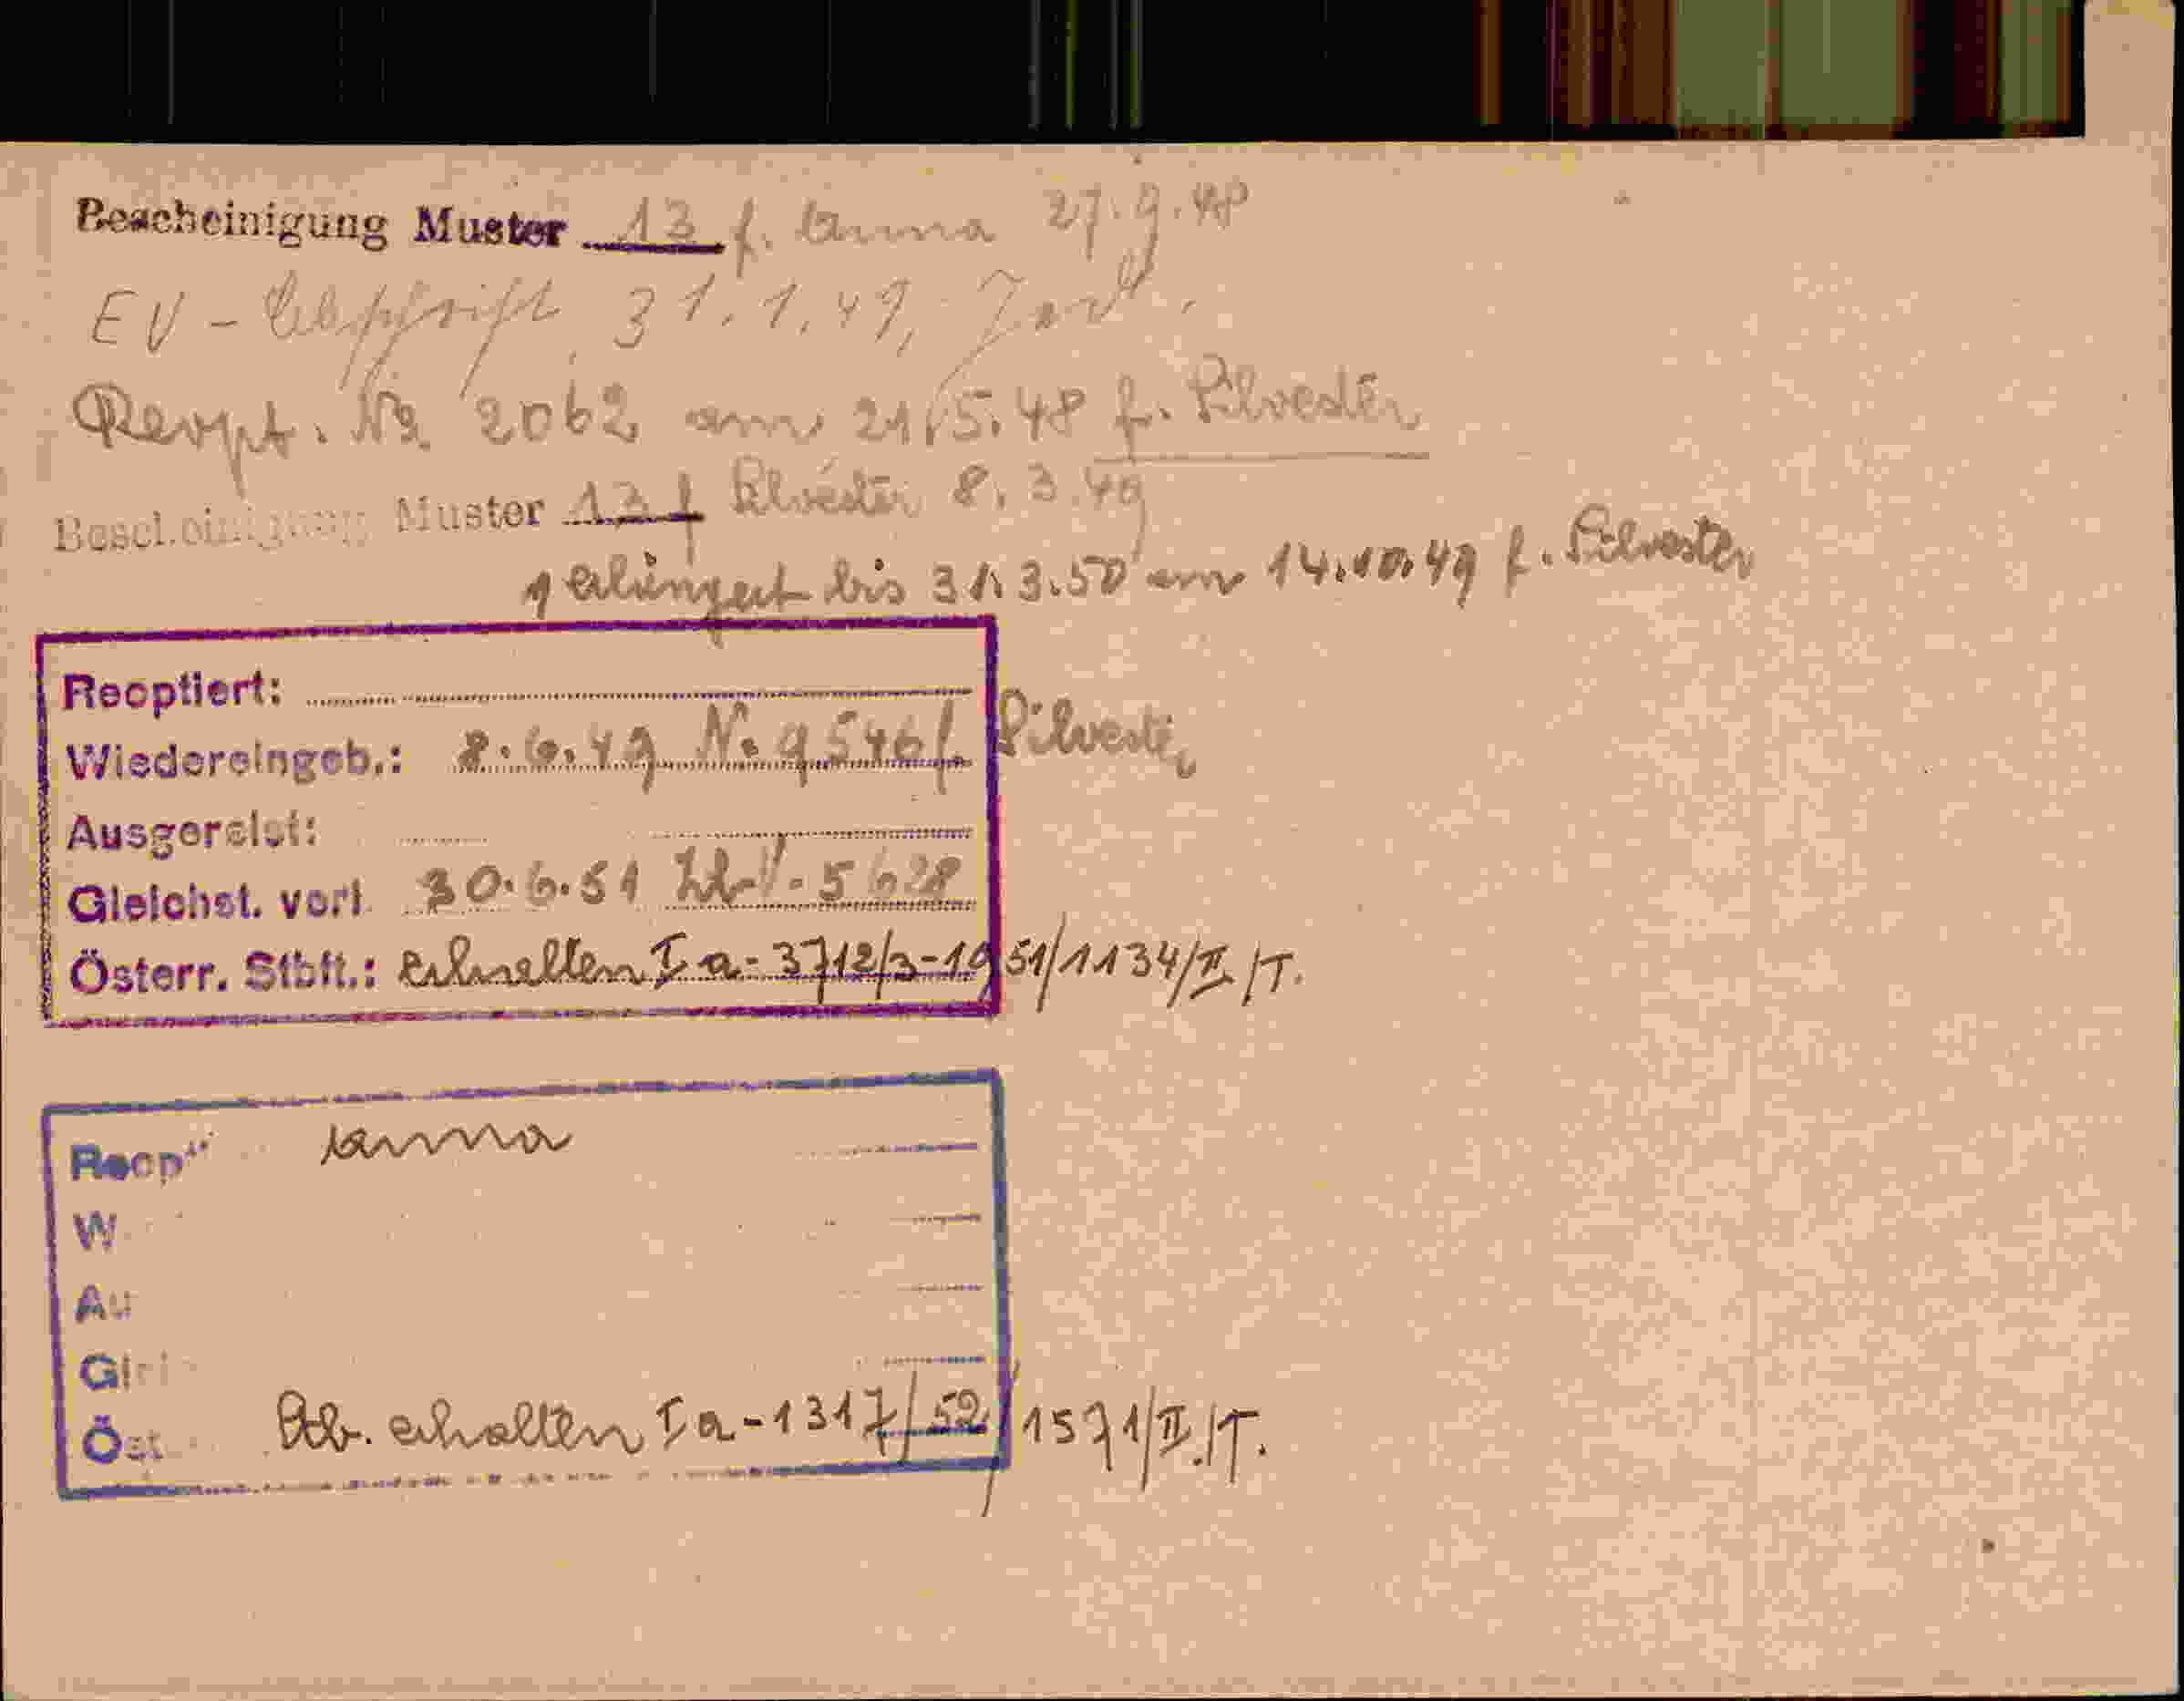 Bescheinigung Muster 13 f. Anna 27.9.48
EV - Abschrift 31.1.49,
Reopt. No 2062 am 21.5.48 f. Silvester
Bescheinigung Muster 13 f Silvester 8.3.49
verlängert bis 31.3.50 am 14.10.49 f. Silvester
Reoptiert:
Wiedereingeb.: 8.6.49 N. 9546 f. Silvester
Ausgereist:
Gleichst. verl. 30.6.51 Zl. - 5628
Österr. Stbft.: erhalten I a - 3712/3-1951/1134/II/T.
Reopt Anna
W
Au
Gl
Öst Stb. erhalten I a - 1317/52/1571/II./T.